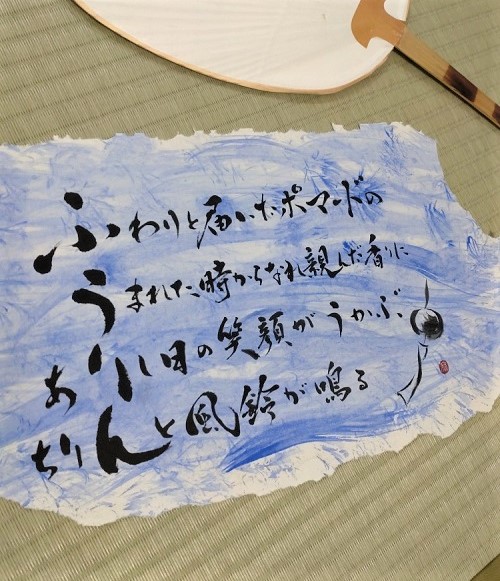 ふわりと届いたポマードの
うまれた時からなれ親んだ香りに
ありし日の笑顔がうかぶ
ちりんと風鈴が鳴る